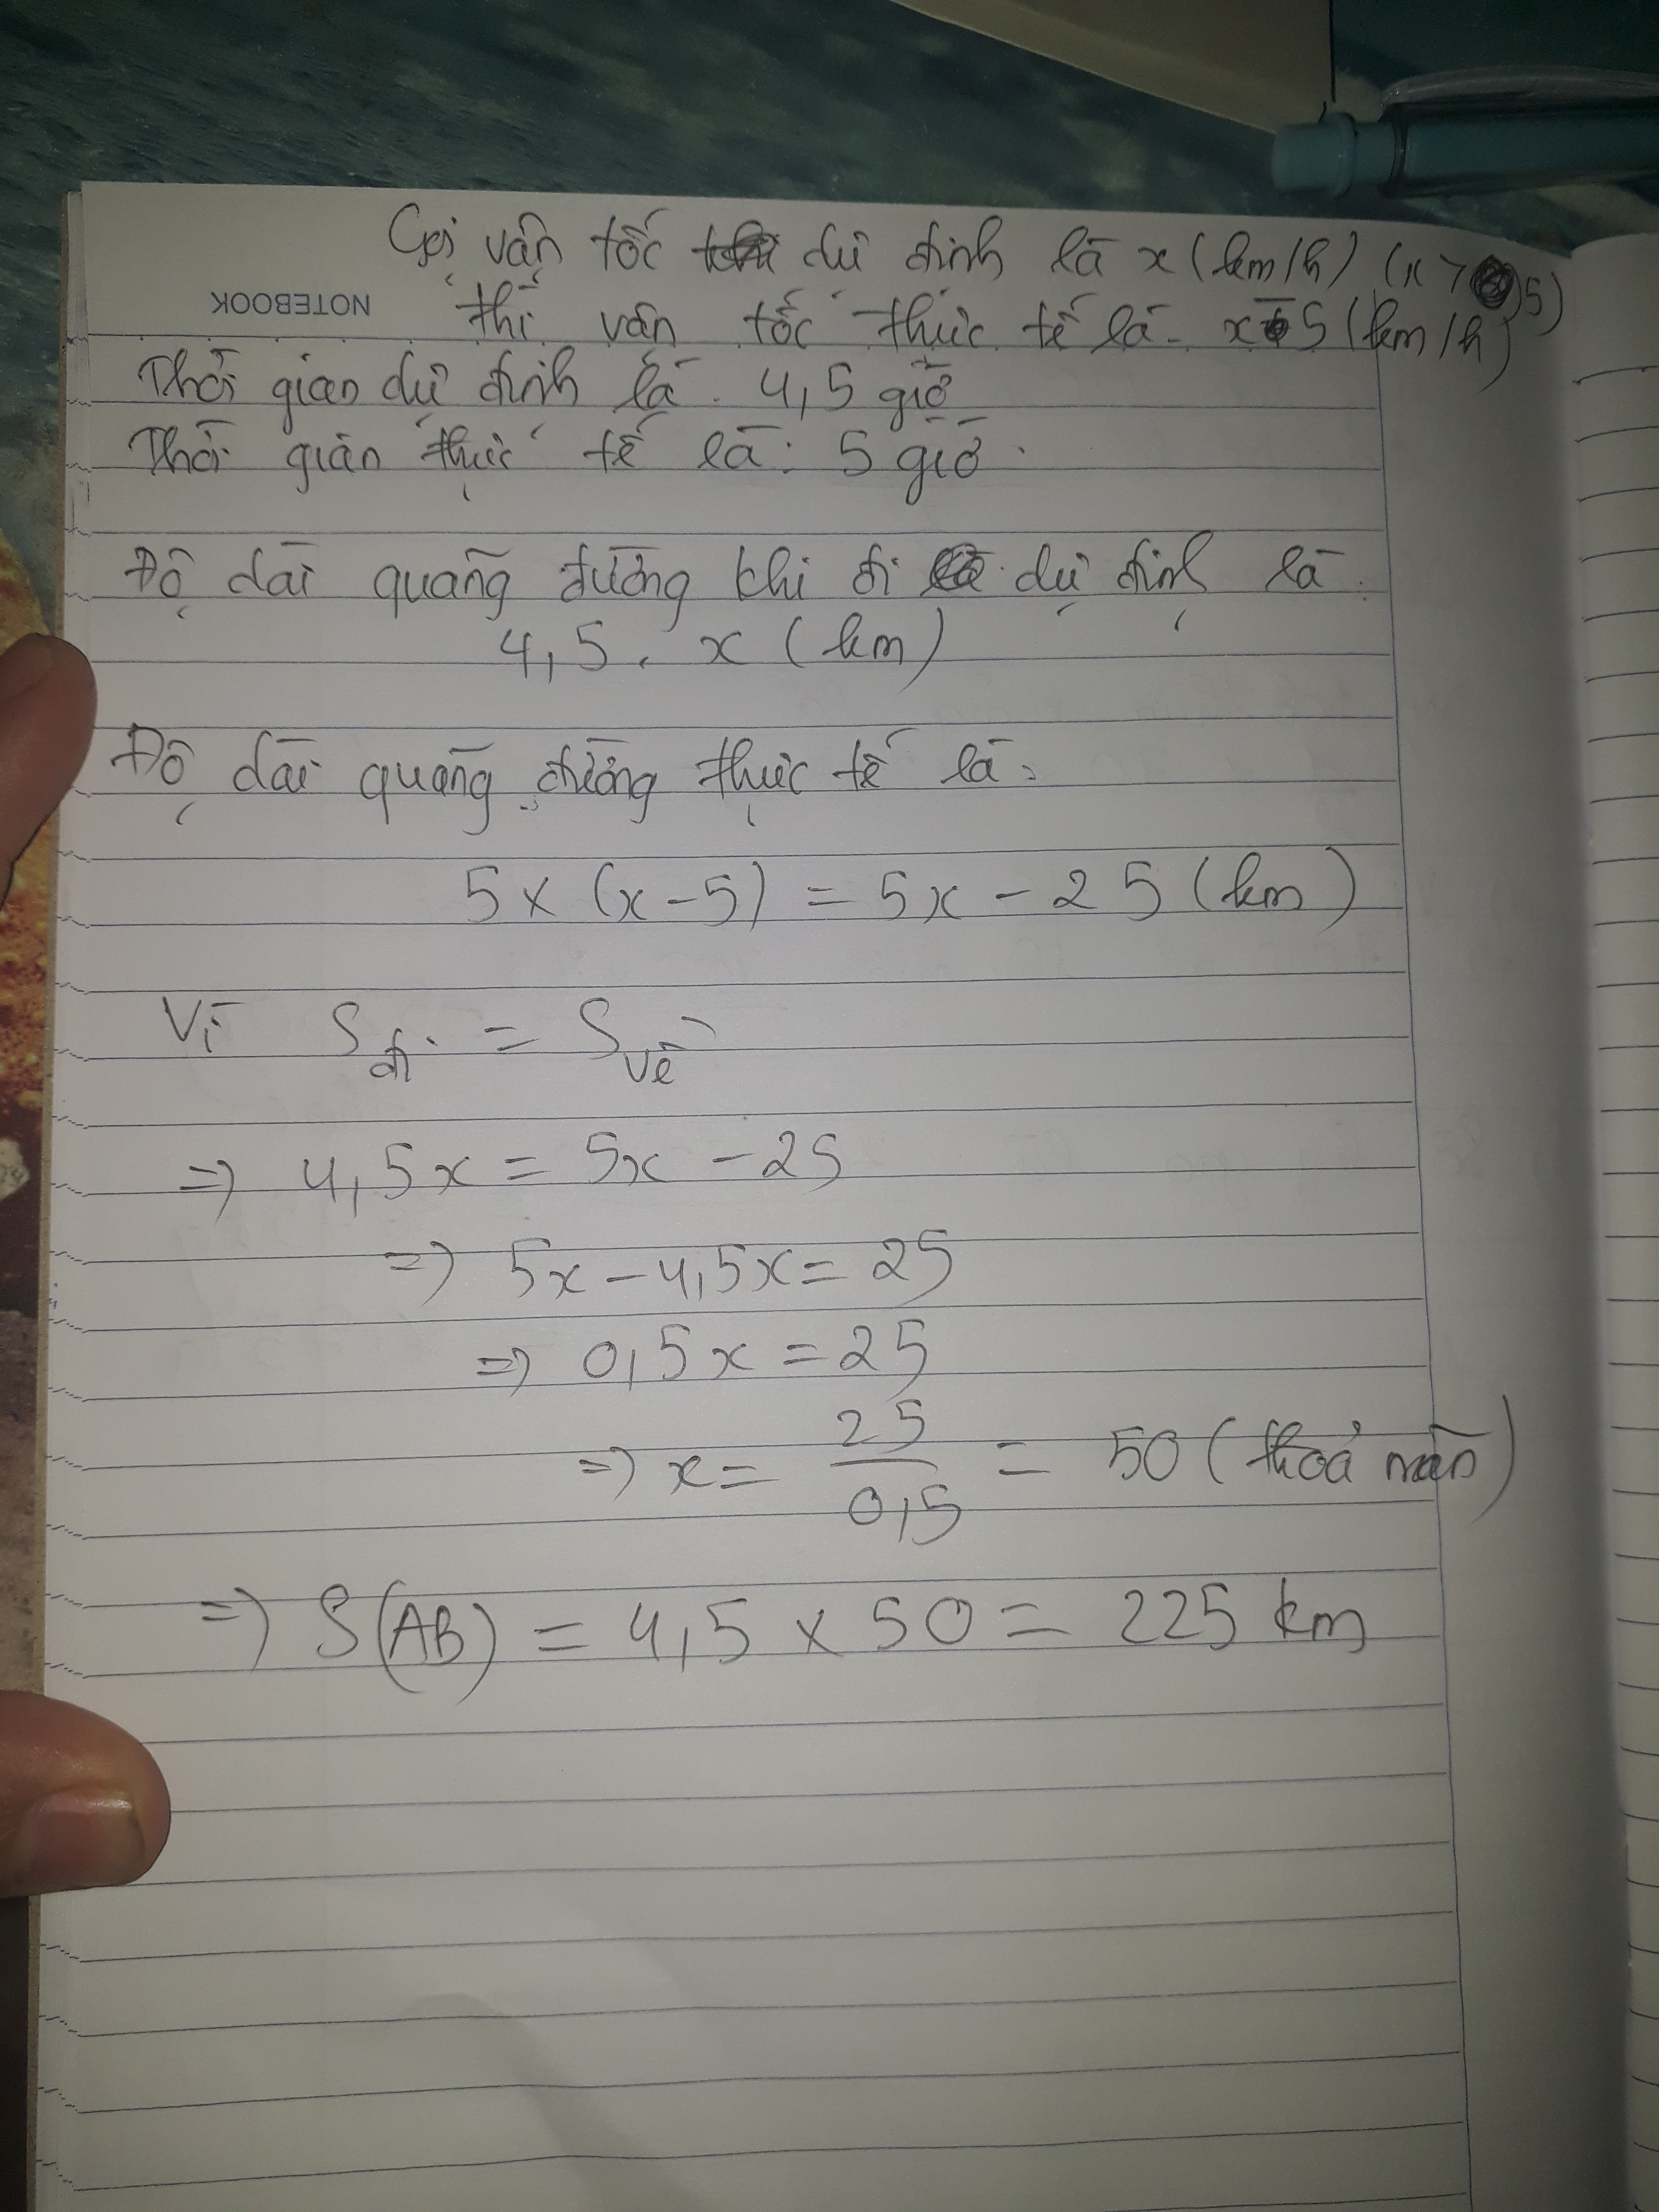 Gọi vận tốc dự định là x (km/h) (x > 5)
NOTEBOOK
thì vận tốc thực tế là x-5 (km/h)
Thời gian dự định là 4,5 giờ
Thời gian thực tế là: 5 giờ.
Độ dài quãng đường khi đi dự định là
4,5 . x (km)
Độ dài quãng đường thực tế là:
5 × (x - 5) = 5x - 25 (km)
Vì S đi = S về
=> 4,5x = 5x - 25
=> 5x - 4,5x = 25
=> 0,5x = 25
=> x = 25/0,5 = 50 (thoả mãn)
=> S(AB) = 4,5 × 50 = 225 km